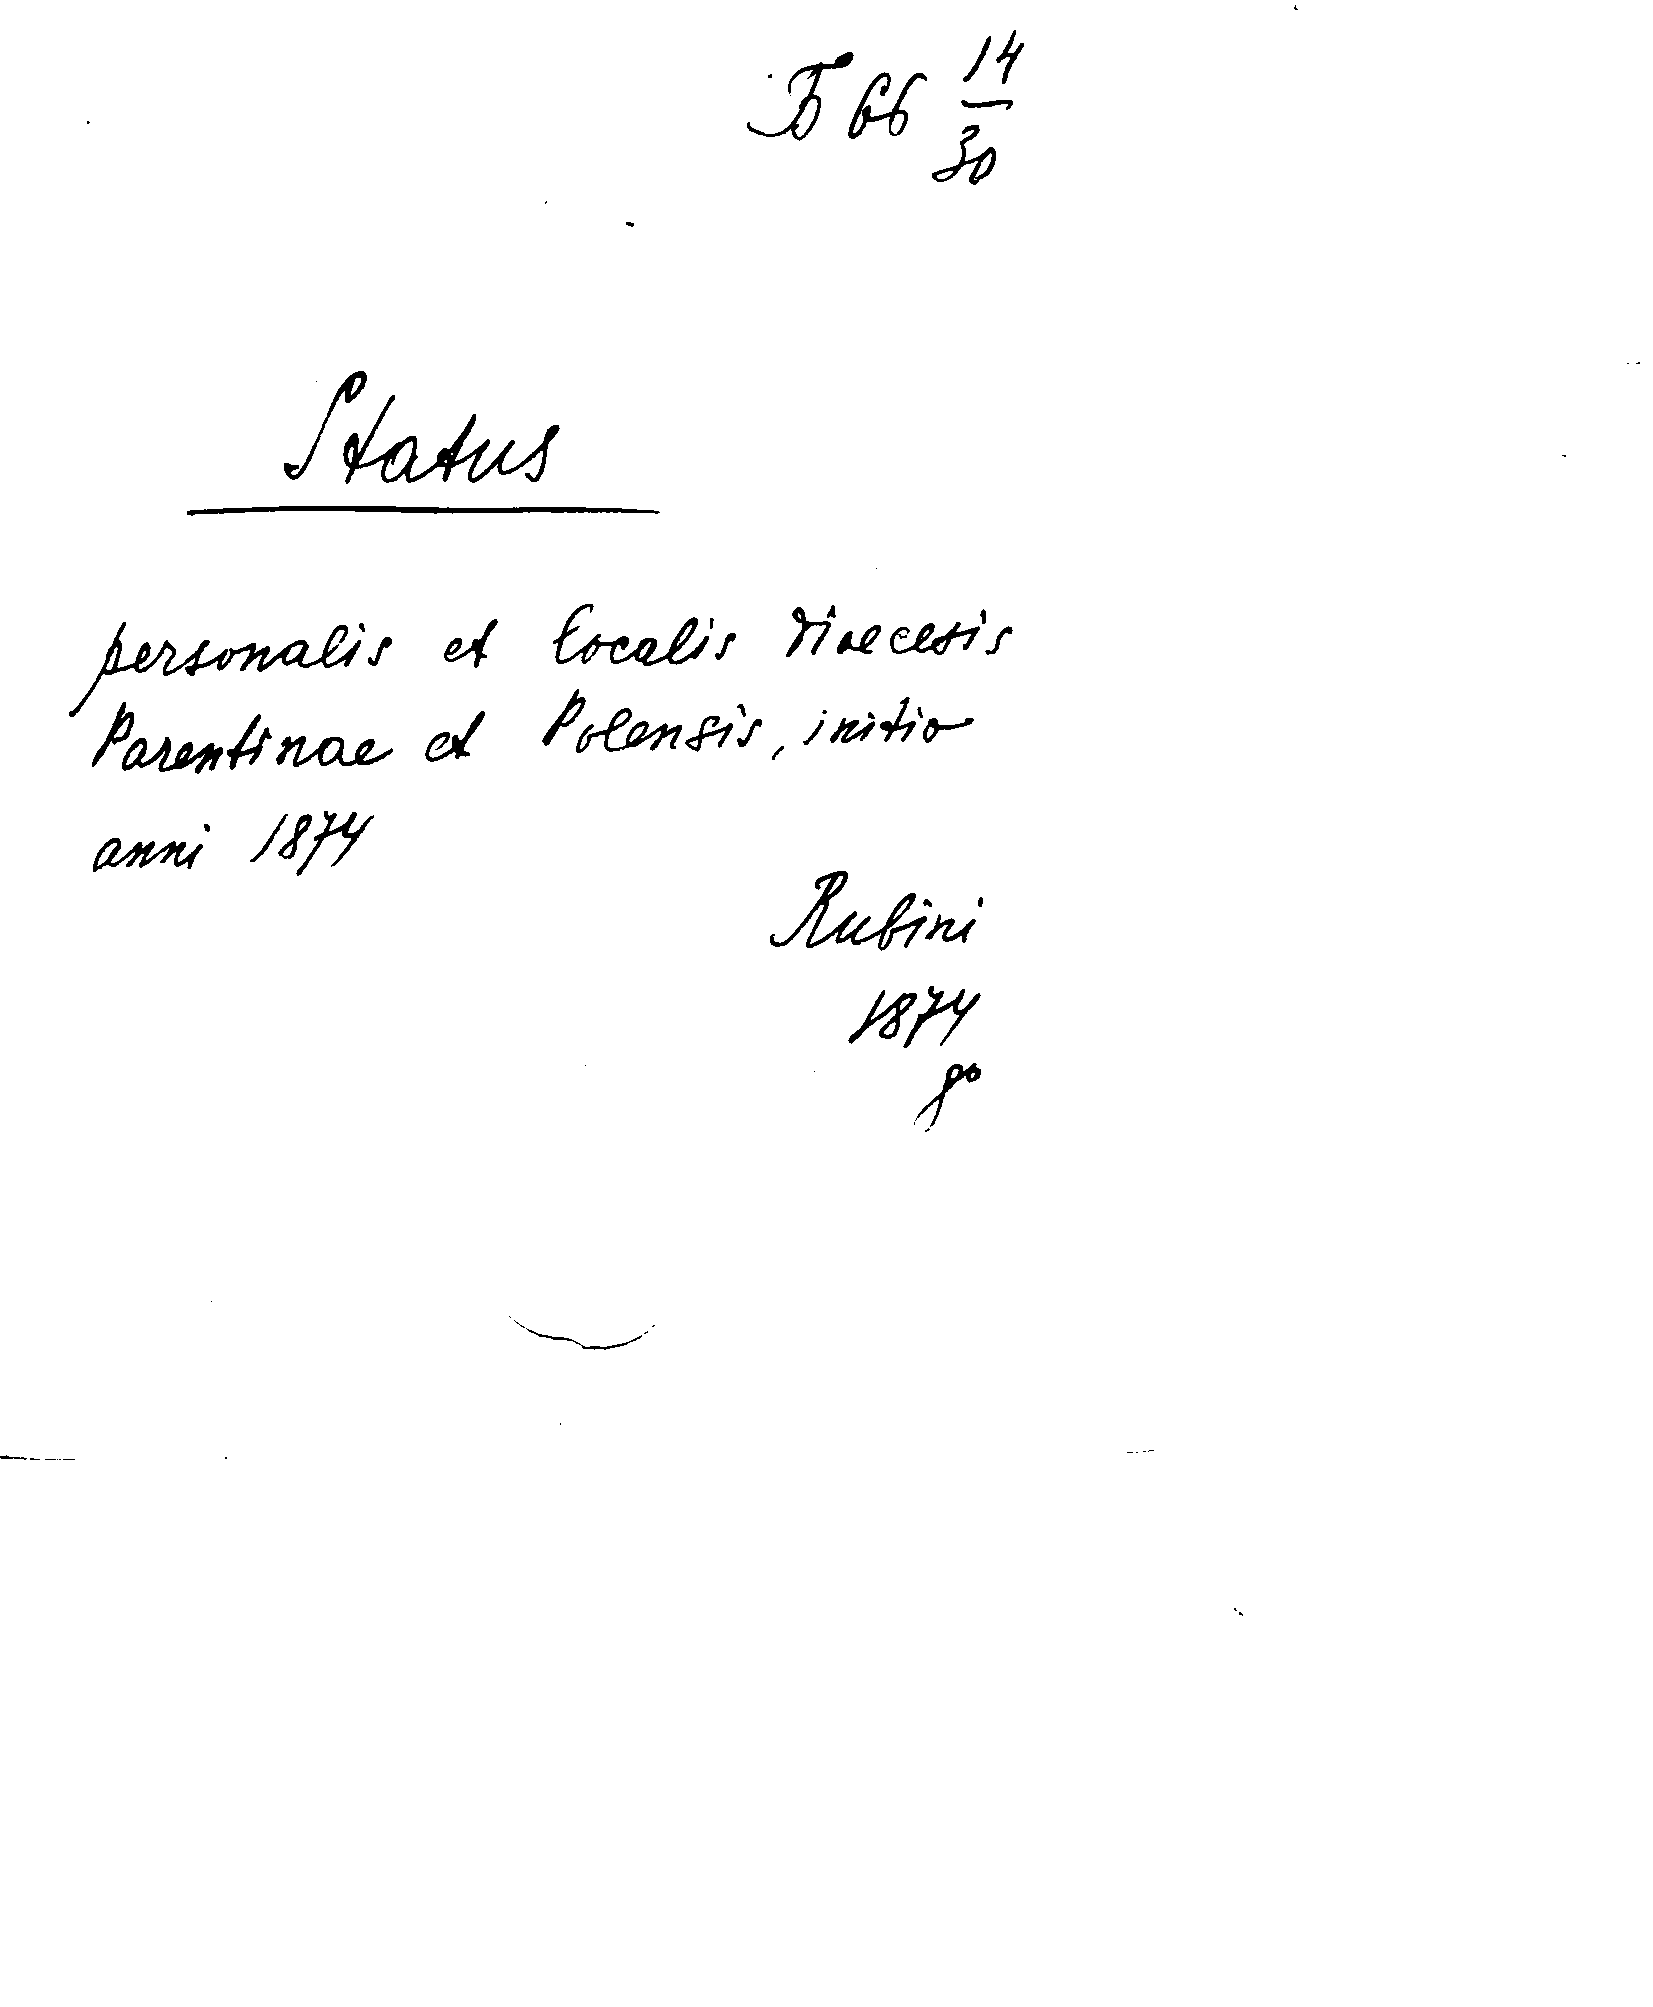 Б 66 14/30
Status
personalis et localis dioecesis
Parentinae et Polensis, initio
anni 1874
Rubini
1874